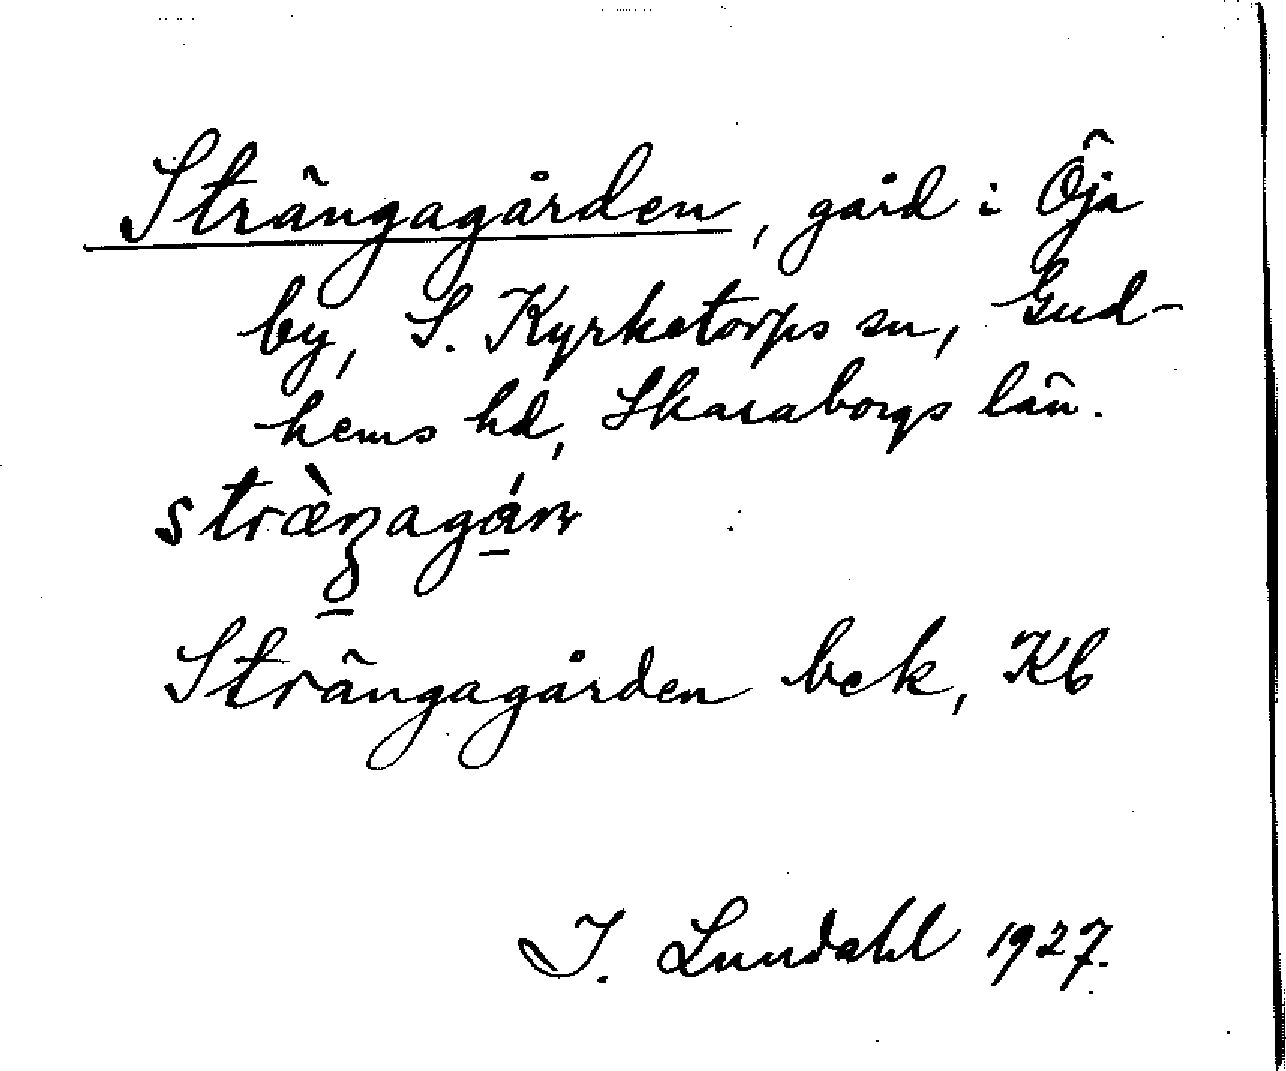 Strängagården, gård i Öja
by, S. Kyrketorps sn, Gud-
hems hd, Skaraborgs län.
Strängagården bek, Kb
I. Lundahl 1927.